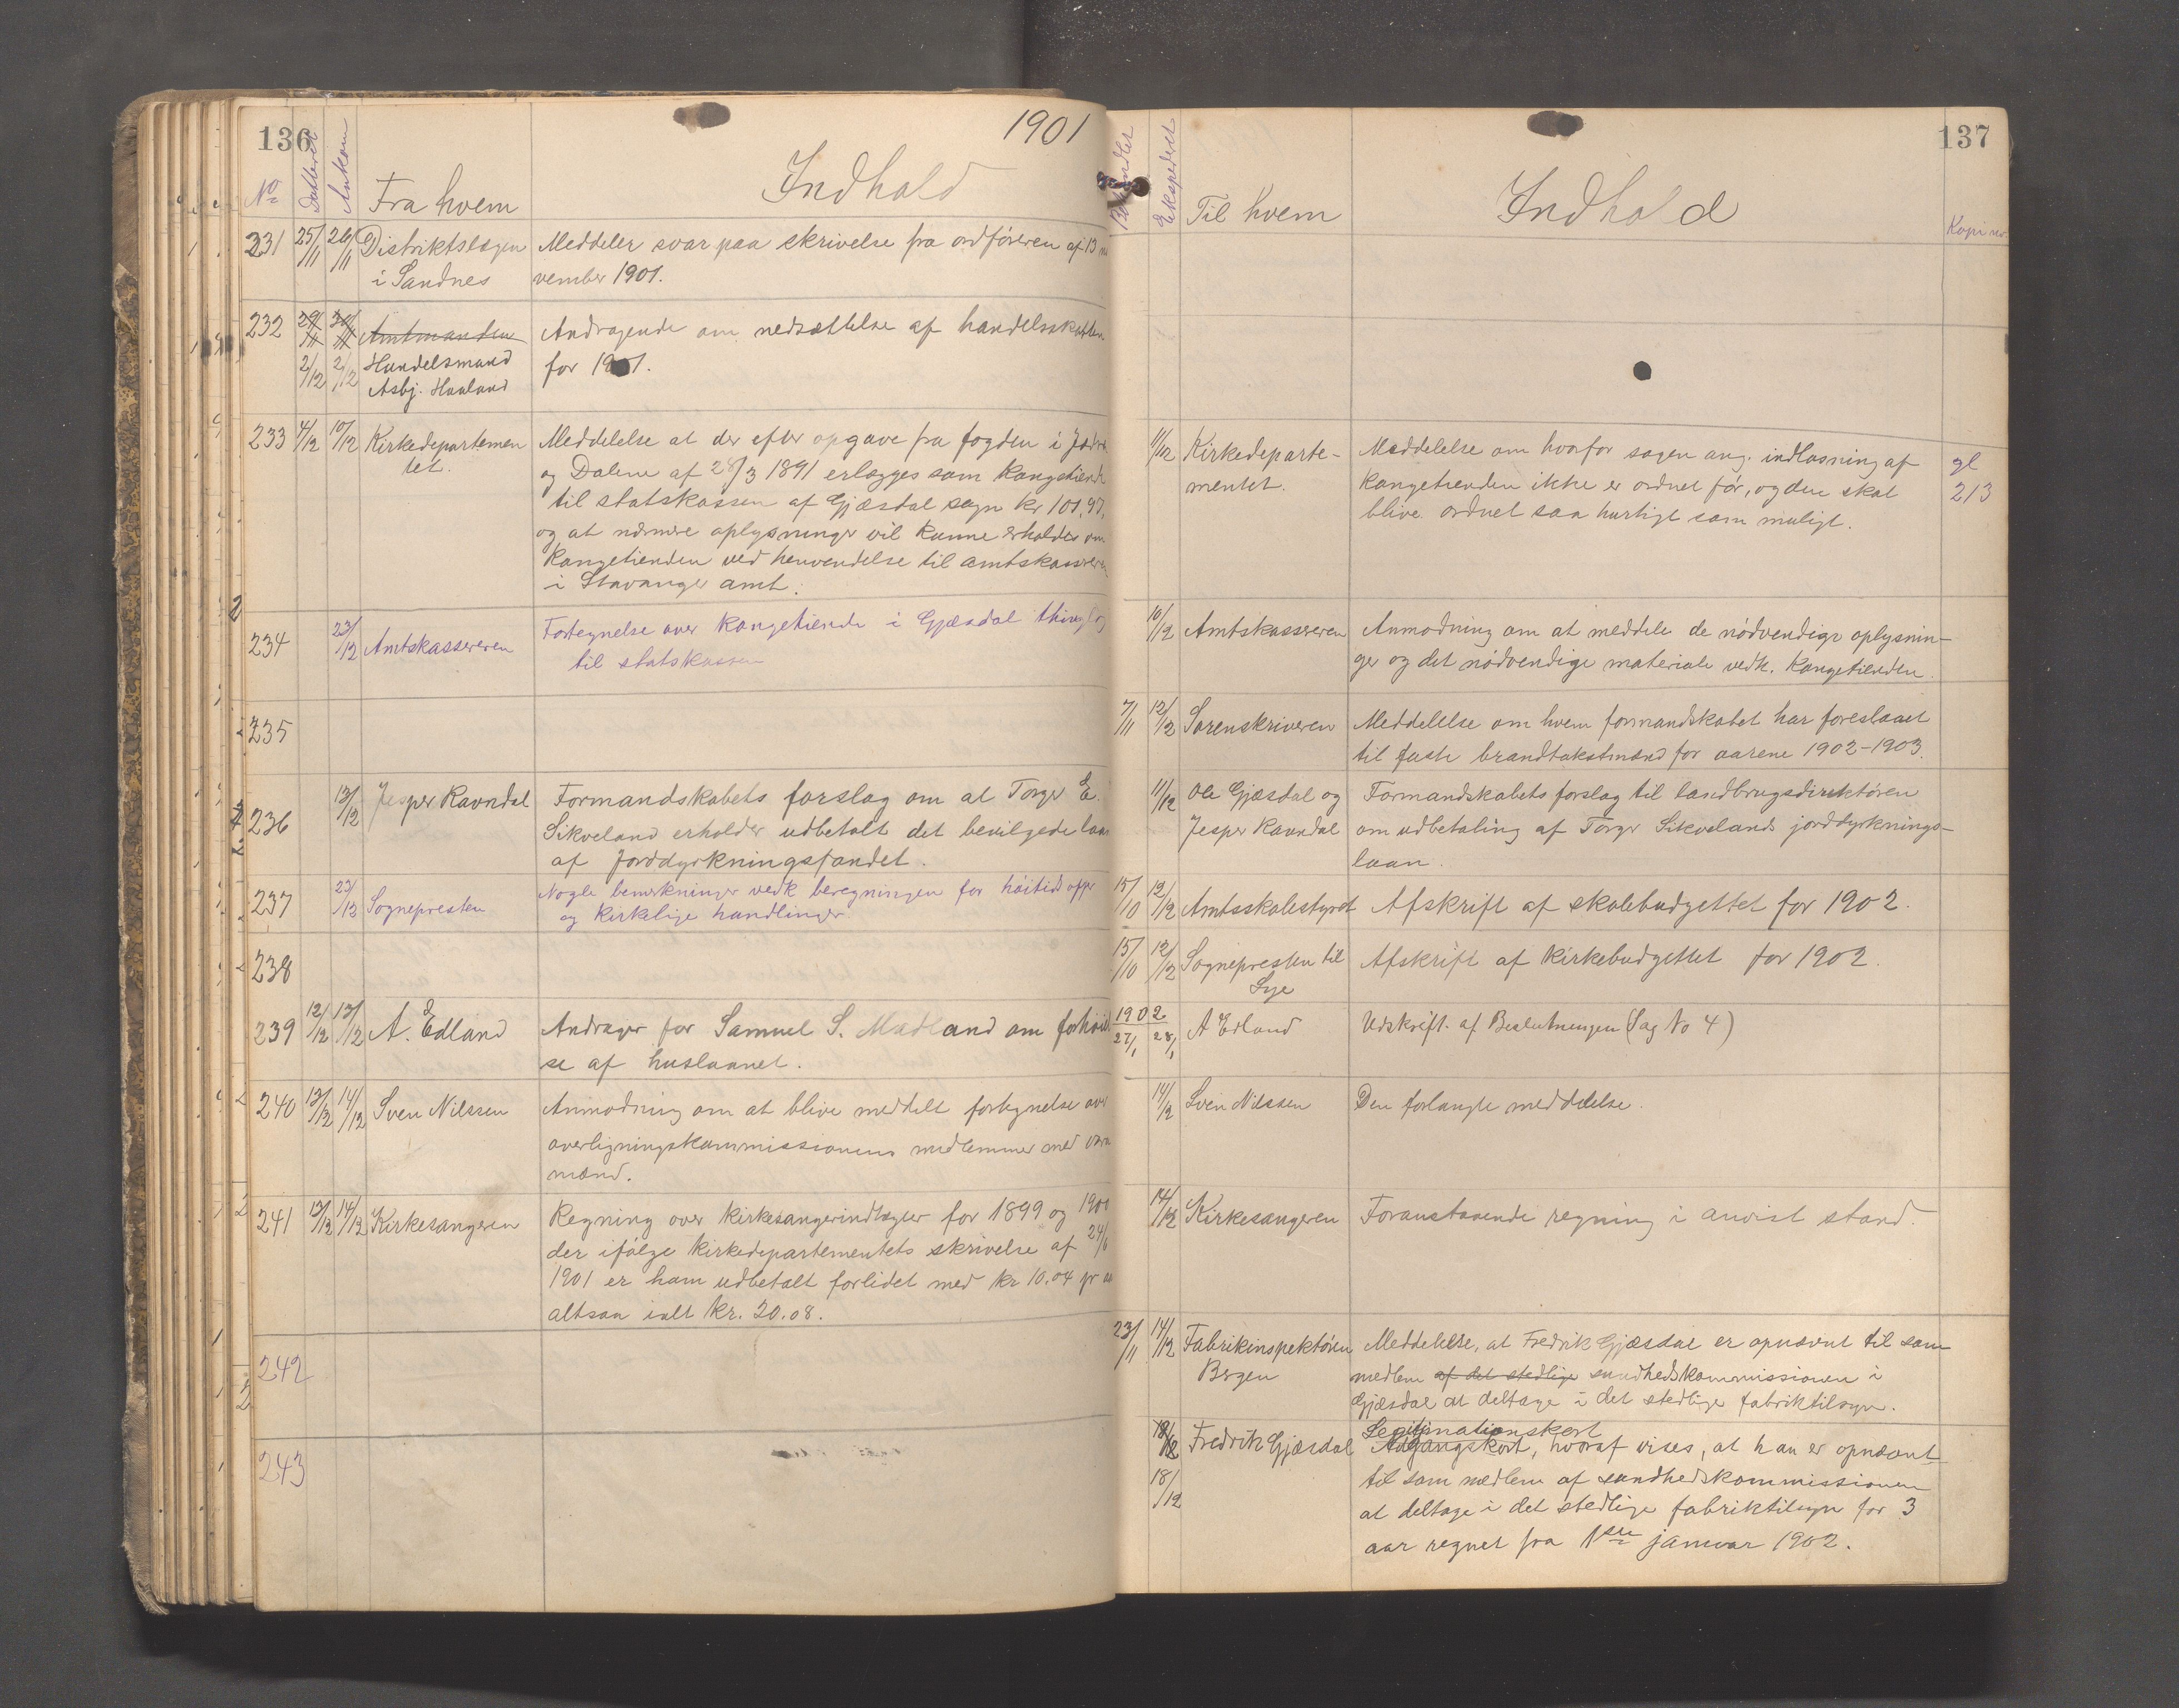 136
1901
No Datteret Ankom Fra hvem Indhold
231 25/11 26/11 Distriktslægen Meddeler svar paa skrivelse fra ordføreren af 13 no
i Sandnes vember 1901.
232 29/11 30/11 Amtmanden Andragende om nedsættelse af handelsskatten
2/12 2/12 Handelsmand for 1901.
Asbj. Haaland
233 4/12 10/12 Kirkedepartemen Meddelelse at der efter opgave fra fogden i Jædre
tet. og Dalene af 28/3 1891 erlægges som kongetiende
til statskassen af Gjæsdal sogn kr 101,97,
og at nærmere oplysninger vil kunne erholdes om
Kongetienden ved henvendelse til amtskassereren
i Stavanger amt.
234 23/12 Amtskassereren Fortegnelse over kongetiende i Gjæsdal thingl
til statskassen
235
236 13/12 Jesper Ravndal Formandskabets forslag om at Torger E.
Sikveland erholder udbetalt det bevilgede laan
af Jorddyrkningsfondet.
237 23/12 Sognepresten Nogle bemerkninger vedk beregningen for høitids offer
og kirkelige handlinger
238
239 12/12 13/12 A. Edland Andrager for Samuel S. Mædland om forhøiel
se af huslaanet.
240 13/12 14/12 Sven Nilssen Anmodning om at blive meddelt fortegnelse over
overligningskommissionens medlemmer med vara
mænd.
241 13/12 14/12 Kirkesangeren Regning over kirkesangerindtægter for 1899 og 1900
der ifølge kirkedepartementets skrivelse af 24/6
1901 er ham udbetalt forlidet med kr 10.04 pr aa
altsaa ialt kr. 20.08.
242
243
137
Behandlet Ekspederet Til hvem Indhold Kopi nr
11/12 Kirkedeparte- Meddelelse om hvorfor sagen ang. indløsning af gl
mentet. kongetienden ikke er ordnet før, og den skal 213
blive ordnet saa hurtigt som muligt.
10/12 Amtskassereren Anmodning om at meddele de nødvendige oplysnin-
ger og det nødvendige materiale vedk. Kongetienden.
7/11 12/12 Sorenskriveren Meddelelse om hvem formandskabet har foreslaaet
til faste brandtakstmænd for aarene 1902-1903.
11/12 Ole Gjæsdal og Formandskabets forslag til landbrugsdirektøren
Jesper Ravndal om udbetaling af Torger Sikvelands jorddyrknings-
laan.
15/10 12/12 Amtsskolestyret Afskrift af skolebudgettet for 1902.
15/10 12/12 Sognepresten til Afskrift af Kirkebudgettet for 1902.
Lye
1902
27/1 28/1 A Edland Udskrift af Beslutningen (Sag No 4)
14/12 Sven Nilssen Den forlangte meddelelse.
14/12 Kirkesangeren Foranstaaende regning i anvist stand.
23/11 14/12 Fabrikinspektøren Meddelelse, at Fredrik Gjæsdal er opnævnt til som
Bergen medlem af det stedlige sundhedskommissionen i
Gjæsdal at deltage i det stedlige fabriktilsyn.
Legitimationskort
18/12 Fredrik Gjæsdal Adgangskort, hvoraf vises, at han er opnævnt
18/12 til som medlem af sundhedskommissionen
at deltage i det stedlige fabriktilsyn for 3
aar regnet fra 1ste januar 1902.